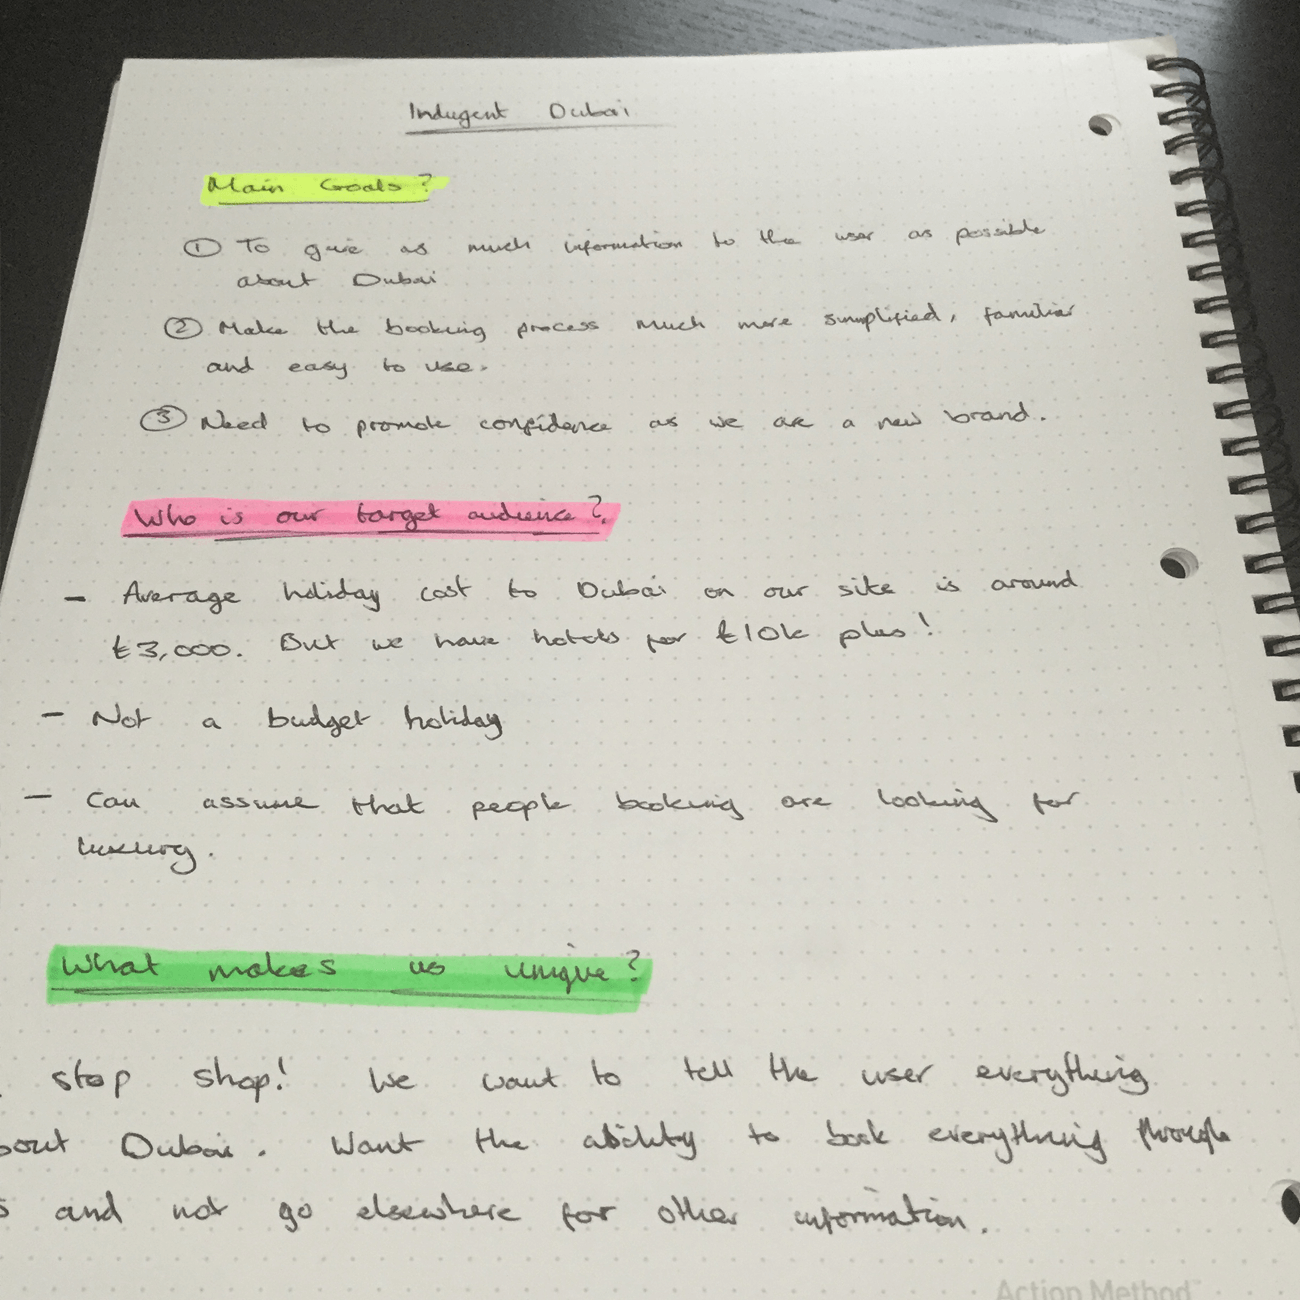 Indugent Dubai
Main Goals?
① To give as much information to the user as possible
about Dubai
② Make the booking process much more simplified, familiar
and easy to use.
③ Need to promote confidence as we are a new brand.
Who is our target audience?
- Average holiday cost to Dubai on our site is around
£3,000. But we have hotels for £10k plus!
- Not a budget holiday
- Can assume that people booking are looking for
luxury.
What makes us unique?
stop shop! We want to tell the user everything
bout Dubai. Want the ability to book everything through
s and not go elsewhere for other information.
Action Method™